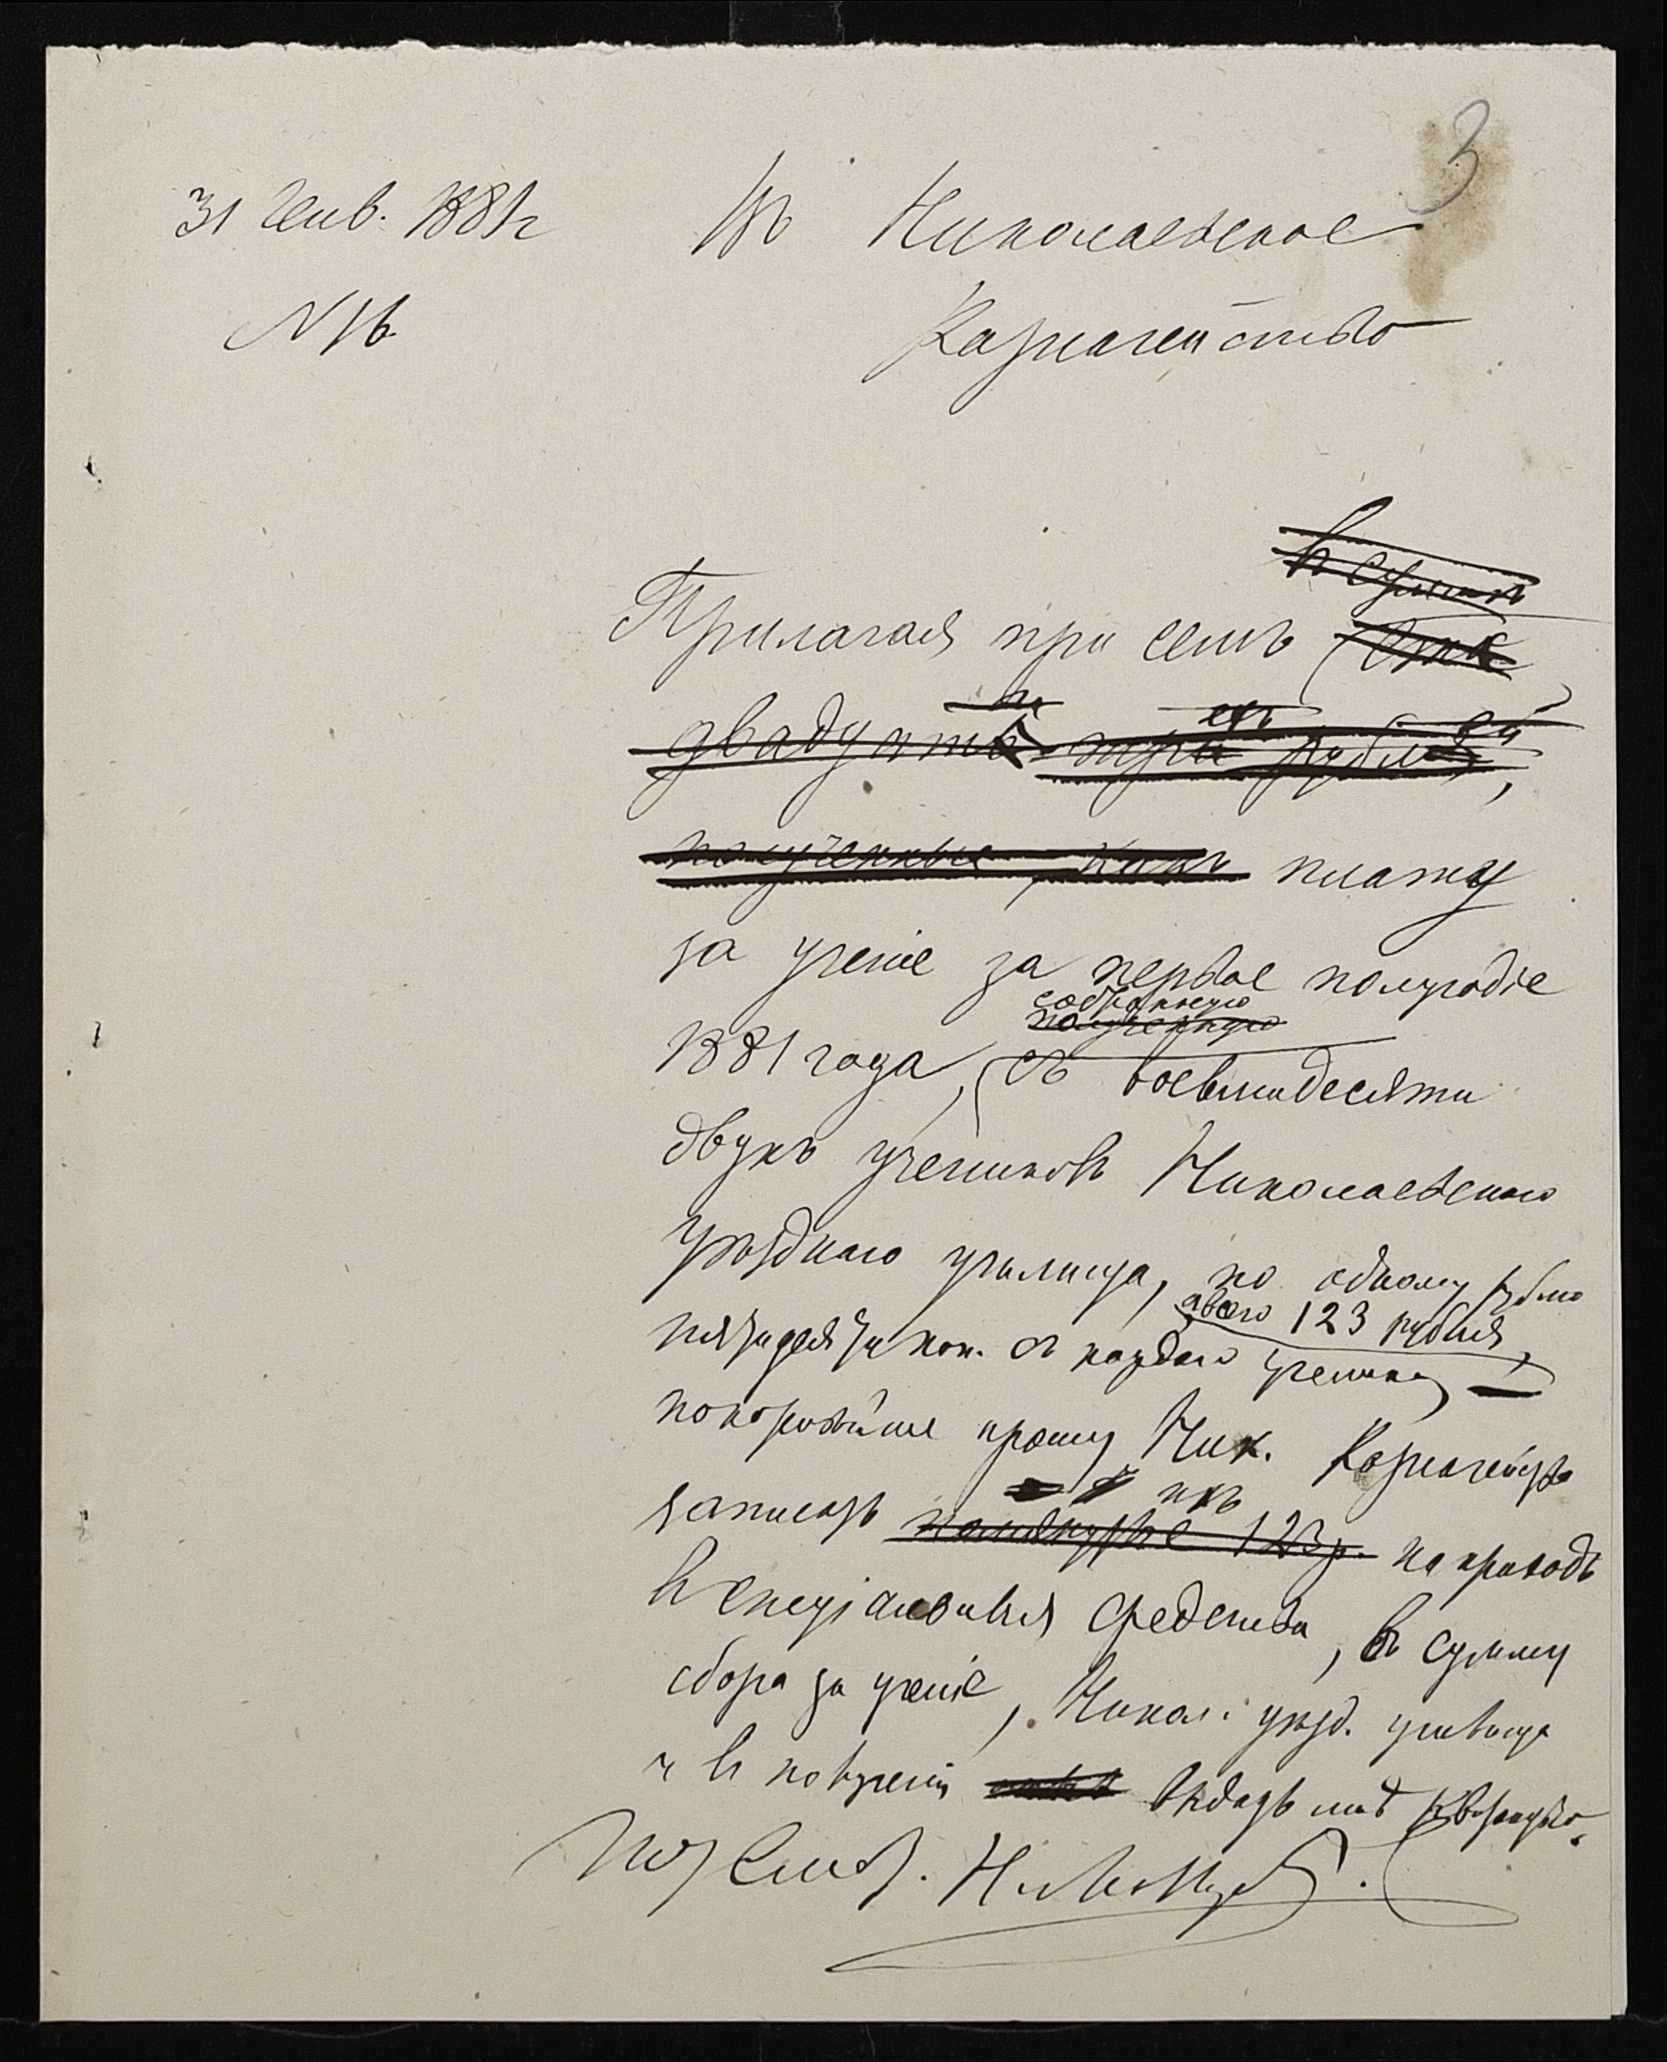 3
31 Генв. 1881 г
Въ Николаевское
№ 16
Казначейство
въ суммѣ
Прилагая при семъ сто
двадцать три рублей,
полученные, какъ плату
за ученіе за первое полугодіе
собранную
полученную
1881 года, съ восьмидесяти
двухъ учениковъ Николаевскаго
уѣзднаго училища, по одному рублю
всего 123 рубля,
пятидесяти коп. съ каждаго ученика,
покорнѣйше прошу Ник. Казначейство
ихъ
записать 123 р. на приходъ
въ спеціальныя средства, въ сумму
сбора за ученіе, Никол. уѣзд. училища
и въ полученіи выдать мнѣ квитанцію.